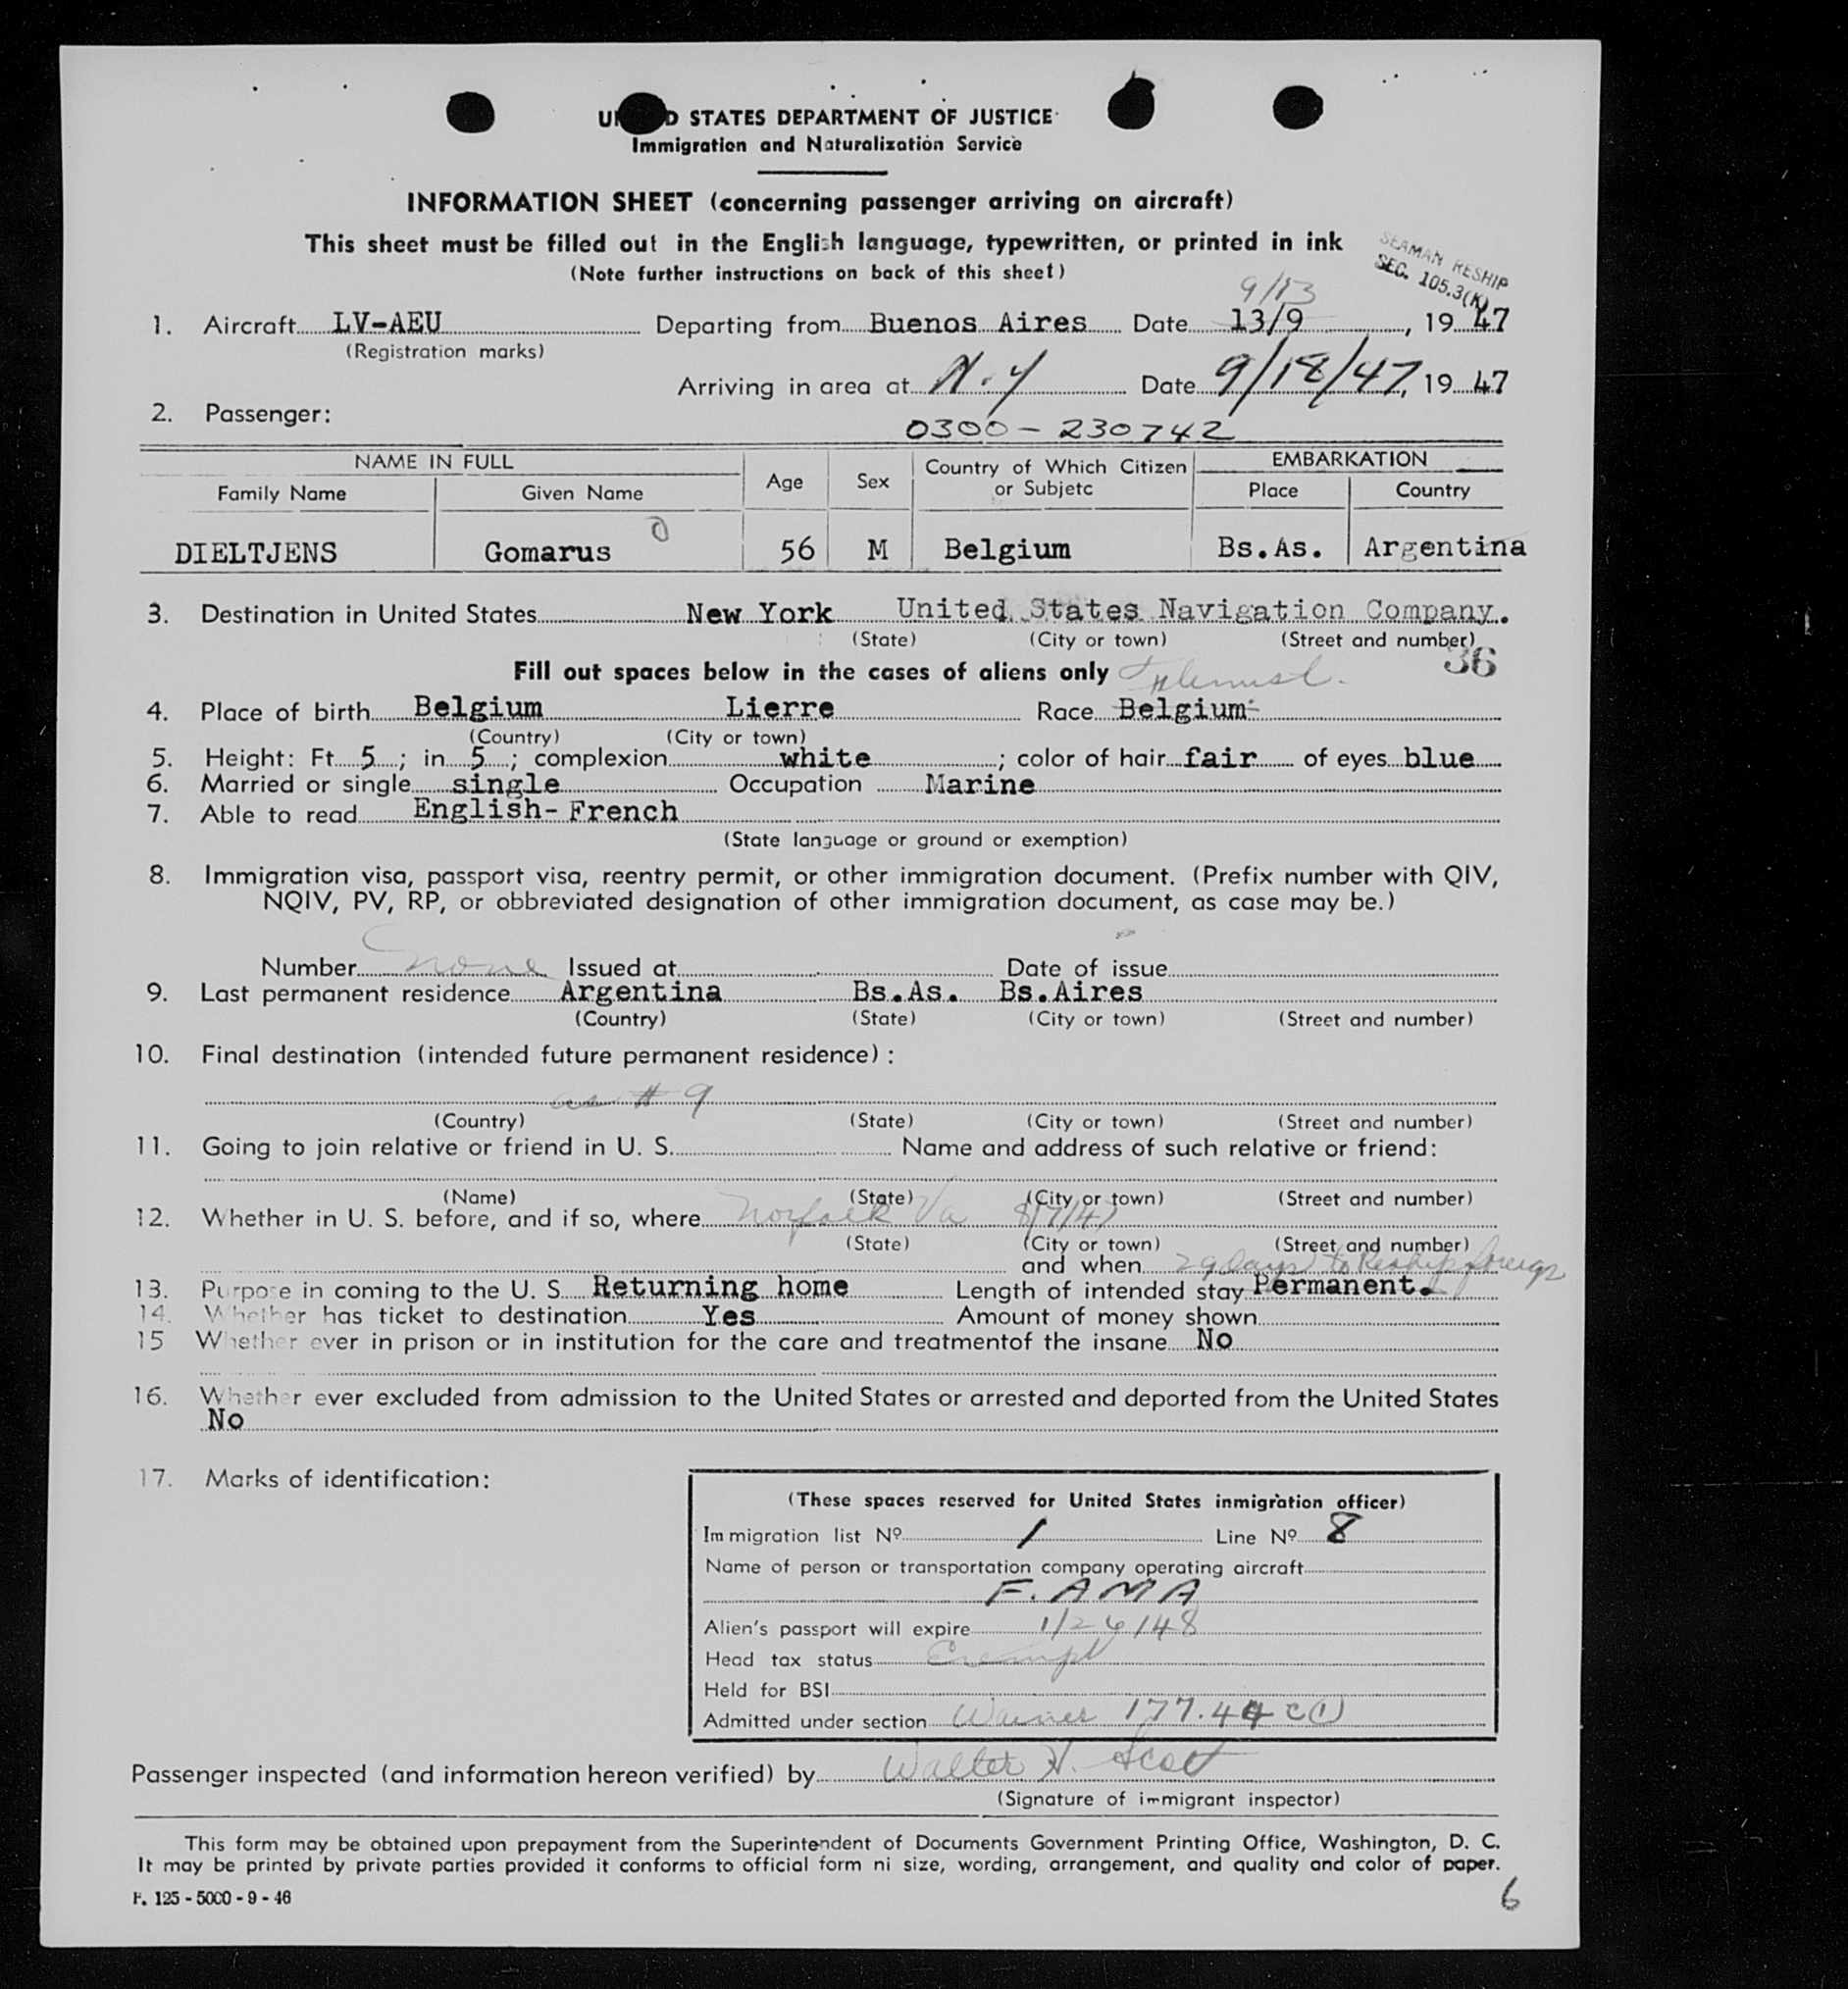 UNITED STATES DEPARTMENT OF JUSTICE
Immigration and Naturalization Service
INFORMATION SHEET (concerning passenger arriving on aircraft)
This sheet must be filled out in the English language, typewritten, or printed in ink
(Note further instructions on back of this sheet)
SEAMAN RESHIP
SEC. 105.3(K)
9/13
1. Aircraft LV-AEU Departing from Buenos Aires Date 13/9, 19 47
(Registration marks)
Arriving in area at N.Y Date 9/18/47, 19 47
2. Passenger:
0300-230742
NAME IN FULL Age Sex Country of Which Citizen or Subjetc EMBARKATION
Family Name Given Name Place Country
DIELTJENS Gomarus 56 M Belgium Bs.As. Argentina
3. Destination in United States New York United States Navigation Company.
(State) (City or town) (Street and number)
36
Fill out spaces below in the cases of aliens only
4. Place of birth Belgium Lierre Race Belgium
(Country) (City or town)
5. Height: Ft 5; in 5; complexion white; color of hair fair of eyes blue
6. Married or single single Occupation Marine
7. Able to read English- French
(State language or ground or exemption)
8. Immigration visa, passport visa, reentry permit, or other immigration document. (Prefix number with QIV,
NQIV, PV, RP, or obbreviated designation of other immigration document, as case may be.)
Number none Issued at Date of issue
9. Last permanent residence Argentina Bs.As. Bs.Aires
(Country) (State) (City or town) (Street and number)
10. Final destination (intended future permanent residence):
as # 9
(Country) (State) (City or town) (Street and number)
11. Going to join relative or friend in U. S. Name and address of such relative or friend:
(Name) (State) (City or town) (Street and number)
12. Whether in U. S. before, and if so, where Norfolk Va 8/7/47
(State) (City or town) (Street and number)
and when 29 days to Reship foreign
13. Purpose in coming to the U. S. Returning home Length of intended stay Permanent.
14. Whether has ticket to destination Yes Amount of money shown
15 Whether ever in prison or in institution for the care and treatmentof the insane No
16. Whether ever excluded from admission to the United States or arrested and deported from the United States
No
17. Marks of identification:
(These spaces reserved for United States inmigration officer)
Immigration list Nº 1 Line Nº 8
Name of person or transportation company operating aircraft
F. AMA
Alien's passport will expire 1/26/48
Head tax status Exempt
Held for BSI
Admitted under section Waiver 177.44 c(1)
Passenger inspected (and information hereon verified) by Walter H. Scott
(Signature of immigrant inspector)
This form may be obtained upon prepayment from the Superintendent of Documents Government Printing Office, Washington, D. C.
It may be printed by private parties provided it conforms to official form ni size, wording, arrangement, and quality and color of paper.
F. 125 - 5000 - 9 - 46
6